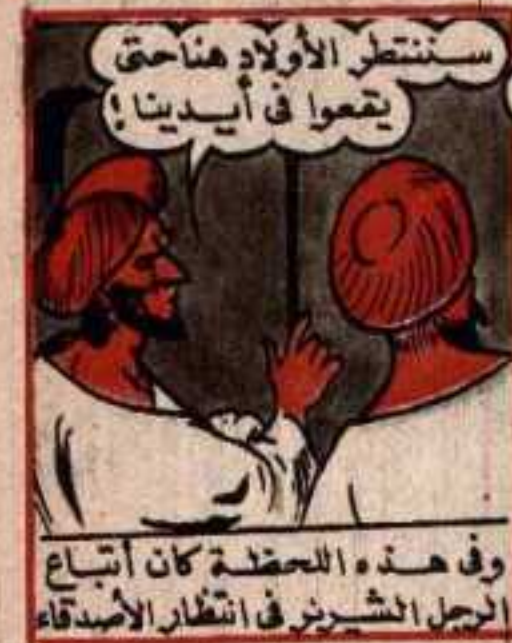 سننتظر الأولاد هنا حتى
يقعوا فى أيدينا !
وفى هذه اللحظة كان أتباع
الرجل الشرير فى انتظار الأصدقاء